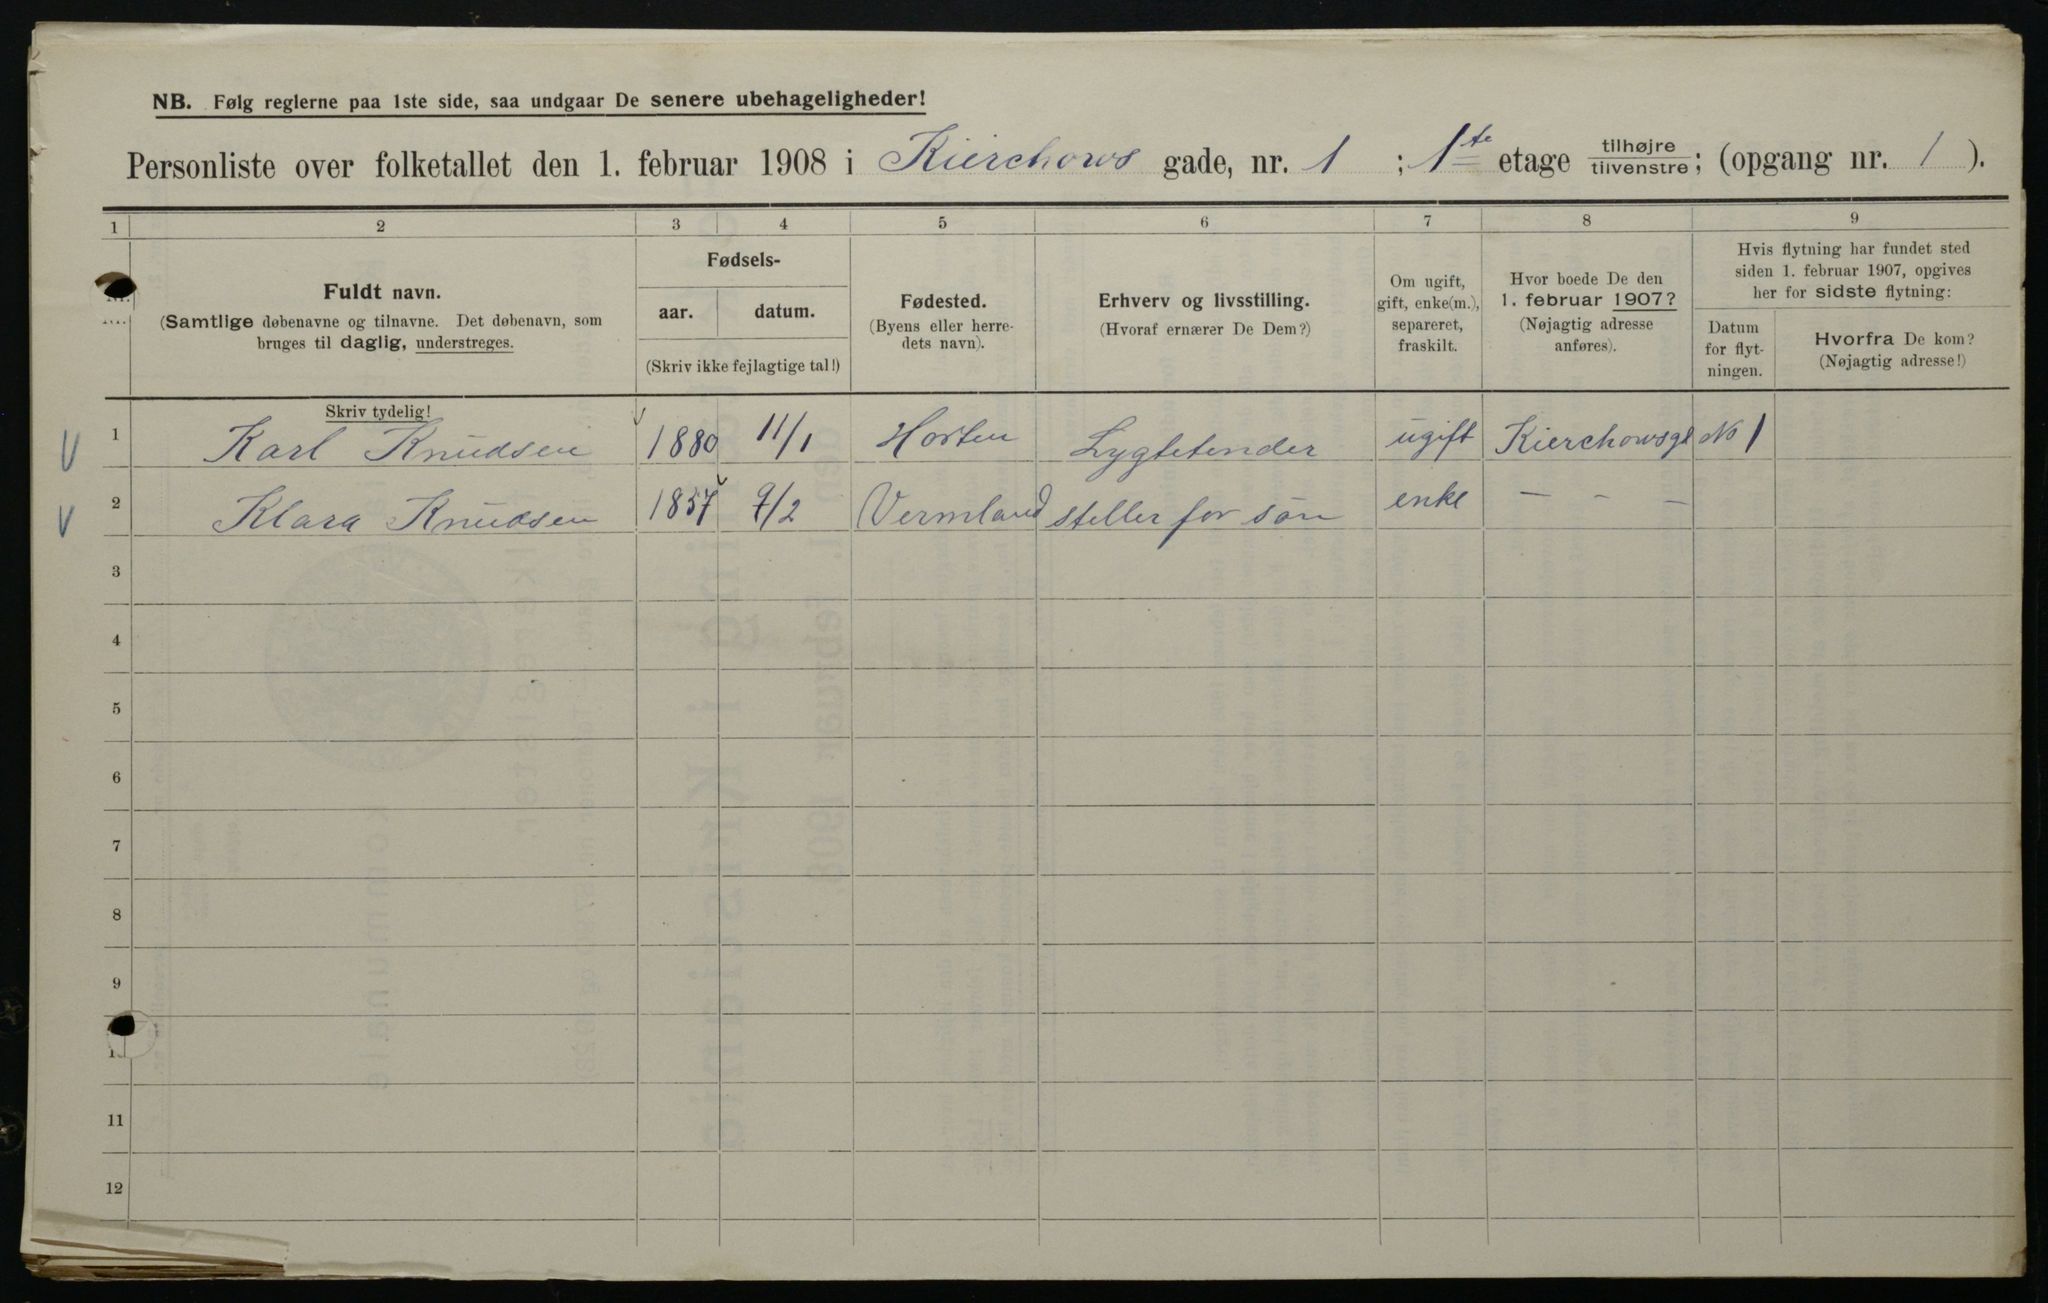 NB. Følg reglerne paa 1ste side, saa undgaar De senere ubehageligheder!
Personliste over folketallet den 1. februar 1908 i Kierchows gade, nr. 1 ; 1ste etage tilhøjre/tilvenstre; (opgang nr. 1 ).
1 2 3 4 5 6 7 8 9
Fuldt navn.
(Samtlige døbenavne og tilnavne. Det døbenavn, som
bruges til daglig, understreges.
Fødsels-
aar. datum.
(Skriv ikke fejlagtige tal!)
Fødested.
(Byens eller herre-
dets navn).
Erhverv og livsstilling.
(Hvoraf ernærer De Dem?)
Om ugift,
gift, enke(m.),
separeret,
fraskilt.
Hvor boede De den
1. februar 1907?
(Nøjagtig adresse
anføres).
Hvis flytning har fundet sted
siden 1. februar 1907, opgives
her for sidste flytning:
Datum
for flyt-
ningen.
Hvorfra De kom?
(Nøjagtig adresse!)
Skriv tydelig!
1 Karl Knudsen 1880 11/1 Horten Lygtetender ugift Kierchowsgt No 1
2 Klara Knudsen 1857 9/2 Vermland steller for søn enke — - —
3
4
5
6
7
8
9
11
12